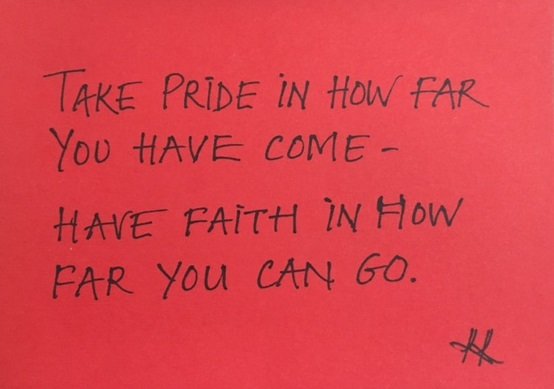 TAKE PRIDE IN HOW FAR
YOU HAVE COME -
HAVE FAITH IN HOW
FAR YOU CAN GO.